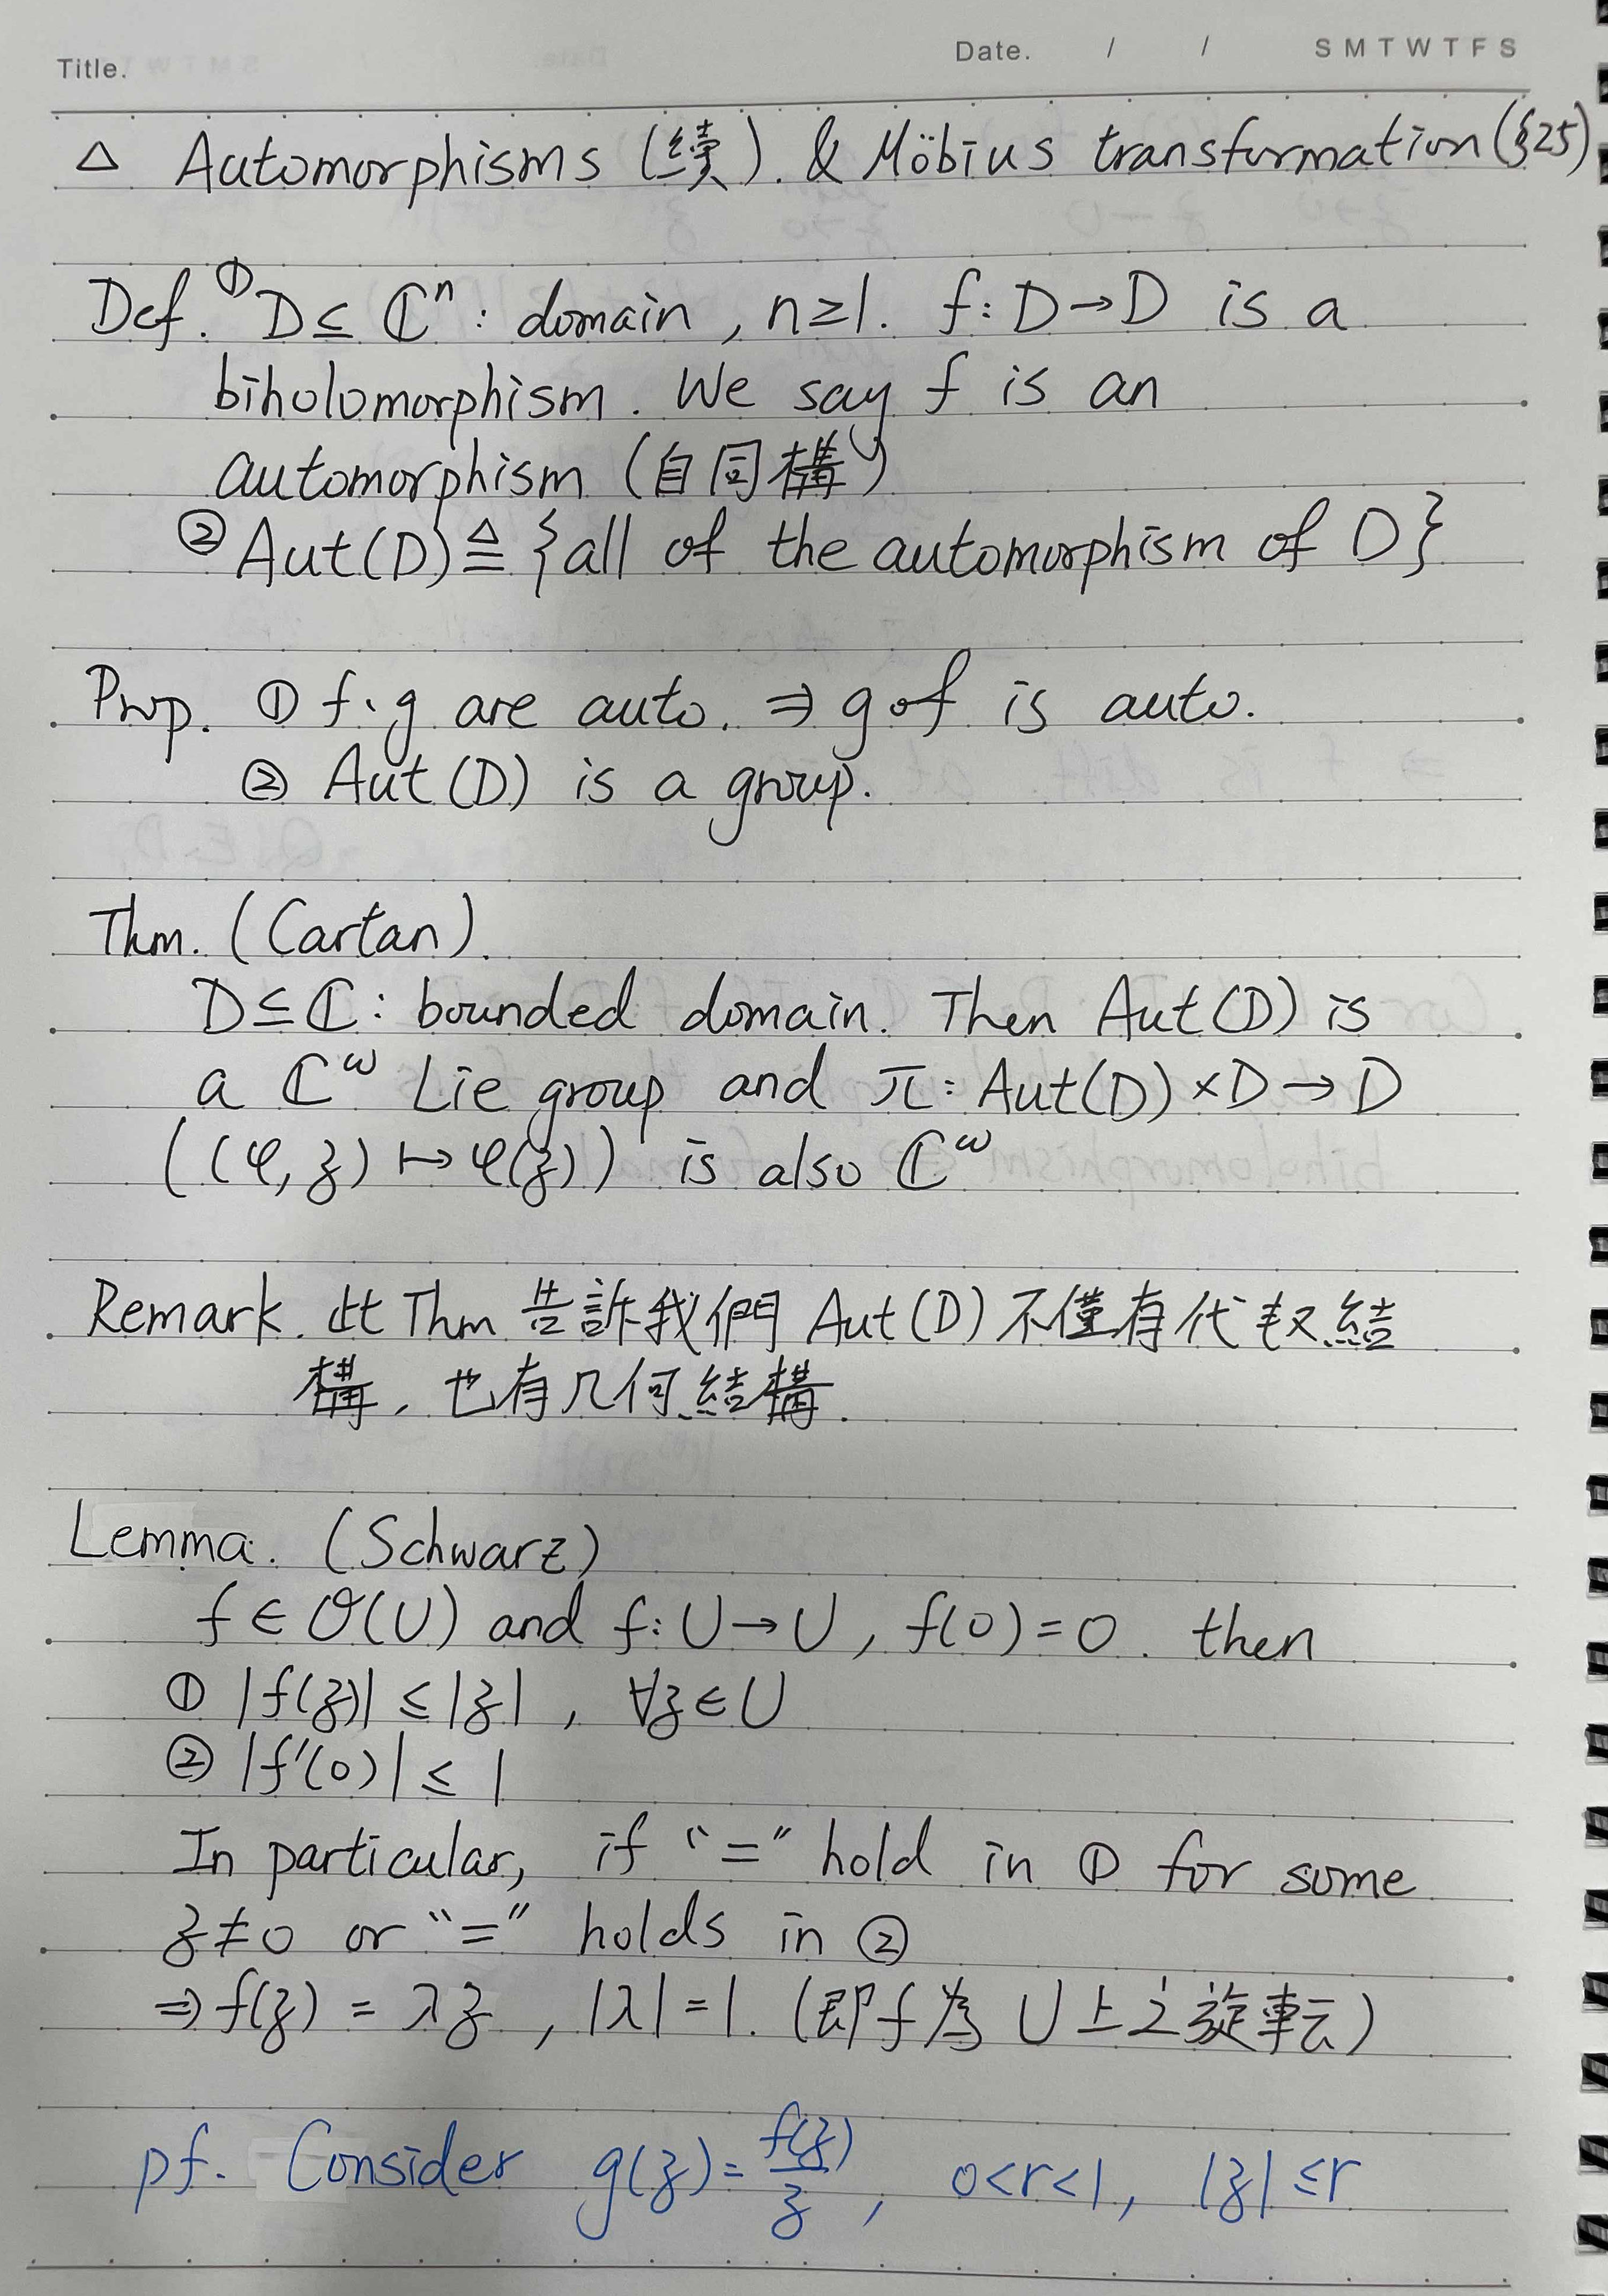 Title.
Date. / / S M T W T F S
△ Automorphisms (續). & Möbius transformation (§25)
Def. ① D ⊆ ℂⁿ : domain , n≥1. f: D→D is a
biholomorphism. We say f is an
automorphism (自同構)
② Aut(D) ≜ {all of the automorphism of D}
Prop. ① f、g are auto. ⇒ g∘f is auto.
② Aut(D) is a group.
Thm. (Cartan).
D ⊆ ℂ : bounded domain. Then Aut(D) is
a ℂ^ω Lie group and π: Aut(D)×D→D
((φ,z) ↦ φ(z)) is also ℂ^ω
Remark. 此 Thm 告訴我們 Aut(D) 不僅有代数結
構, 也有几何結構.
Lemma. (Schwarz)
f ∈ 𝒪(U) and f: U→U, f(0)=0. then
① |f(z)| ≤ |z| , ∀z∈U
② |f'(0)| ≤ 1
In particular, if "=" hold in ① for some
z≠0 or "=" holds in ②
⇒ f(z) = λz , |λ|=1. (即 f 為 U 上之旋転)
pf. Consider g(z)= f(z)/z , 0<r<1, |z| ≤r